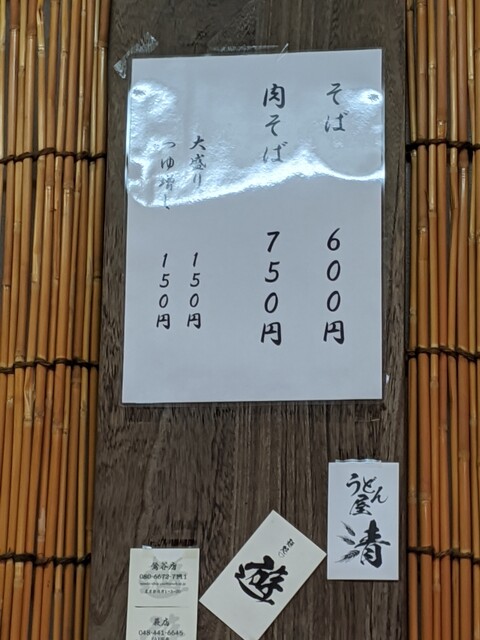 そば 600円
肉そば 750円
大盛り 150円
つゆ増し 150円
うどん
屋
清
遊
鶯谷店
蕨店
048-441-6645